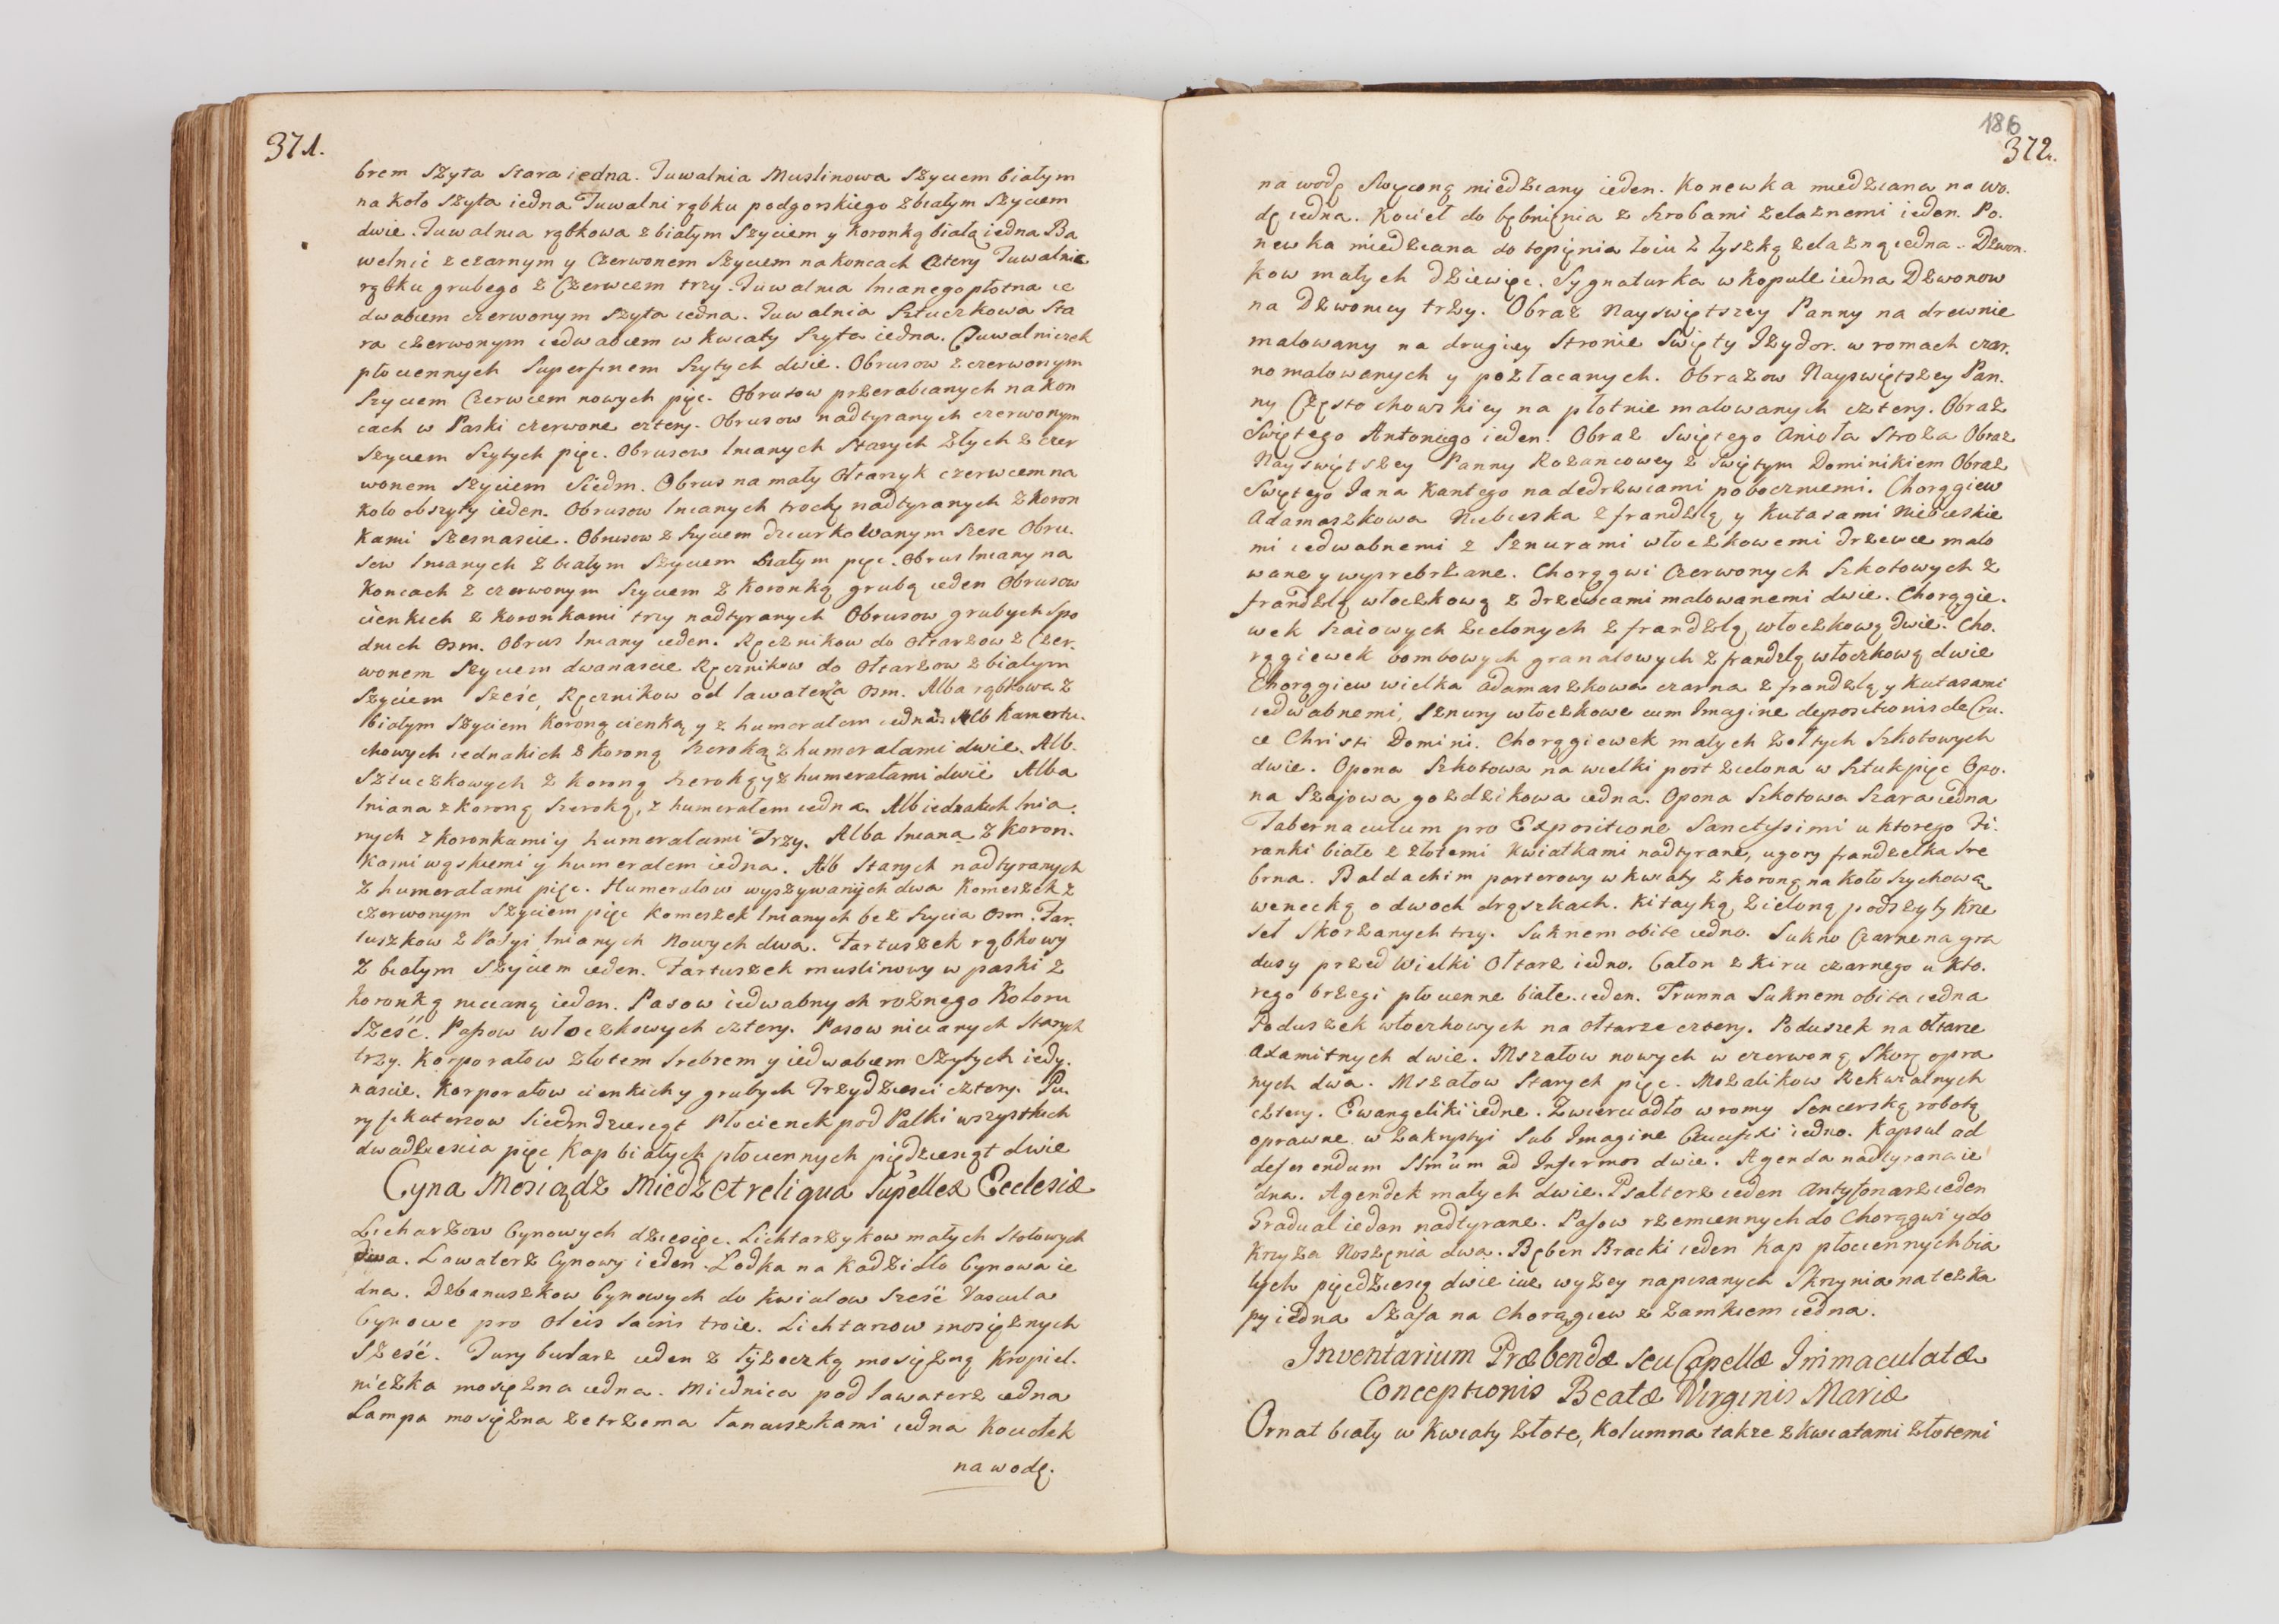 371.
brem Szyta stara iedna. Tuwalnia Muslinowa Szyciem białym
na koło szyta iedna Tuwalni rąbku podgorskiego z białym Szyciem
dwie. Tuwalnia rąbkowa z białym Szyciem y koronką białą iedna Ba
wełnic z czarnym y Czerwonem Szyciem na koncach cztery Tuwalnie
rąbku grubego z Czerwcem trzy. Tuwalnia lnianego płotna ie
dwabiem czerwonym szyta iedna. Tuwalnia Sztuczkowa Sta
ra czerwonym iedwabiem w kwiaty Szyta iedna. Tuwalniczek
płociennych Superfinem Szytych dwie. Obrusow z czerwonym
Szyciem Czerwcem nowych pięc. Obrusow przerabianych na kon
cach w Paski czerwone cztery. Obrusow nadtyranych czerwonym
Szyciem Szytych pięc. Obrusow lnianych Starych złych z czer
wonem Szyciem Siedm. Obrus na mały Ołtarzyk czerwcem na
koło obszyty ieden. Obrusow lnianych trochę nadtyranych z koron
kami Szesnascie. Obrusow z Szyciem dziurkowanym Szesc Obru.
sow lnianych z białym Szyciem białym pięc. Obrus lniany na
koncach z czerwonym Szyciem z koronką grubą ieden Obrusow
cienkich z koronkami trzy nadtyranych Obrusow grubych Spo
dnich osm. Obrus lniany ieden. Ręcznikow do Ołtarzow z Czer.
wonem Szyciem dwanascie Ręcznikow do Ołtarzow z białym
Szyciem Sześć, Ręcznikow od lawaterza osm. Alba rąbkowa z
białym szyciem koroną cienką y z humerałem iedna Alb kamertu.
chowych iednakich z koroną szeroką z humerałami dwie. Alb.
Sztuczkowych z koroną szeroką y z humerałami dwie Alba
lniana z koroną szeroką, z humerałem iedna. Alb iednakich lnia.
nych z koronkami y humerałami Trzy. Alba lniana z koron.
kami wąskiemi y humerałem iedna. Alb Starych nadtyranych
z humerałami pięc. Humerałow wyszywanych dwa Komeszek z
czerwonym Szyciem pięc Komeszek lnianych bez szycia osm. Far.
tuszkow z Passyi lnianych Nowych dwa. Fartuszek rąbkowy
z białym szyciem ieden. Fartuszek muslinowy w paski z
koronką nicianą ieden. Pasow iedwabnych rożnego koloru
sześć. Passow włoczkowych cztery. Pasow nicianych Starych
trzy. Korporałow złotem srebrem y iedwabiem Szytych iedy.
nascie. Korporałow cienkich y grubych Trzydziesci cztery. Pu.
ryfikaterzow Siedmdziesiąt Płocienek pod Palki wszystkich
dwadziescia pięc Kap białych płociennych pięćdziesiąt dwie
Cyna Mosiądz Miedz et reliqua Supellex Ecclesiæ
Licharzow Cynowych dziesięc. Lichtarzykow małych stołowych
dwa. Lawaterz Cynowy ieden. Łodka na kadzidło Cynowa ie
dna. Dzbanuszkow Cynowych do kwiatow sześć Vascula
Cynowe pro Oleis Sacris troie. Lichtarzow mosiężnych
Sześć. Turybularz ieden z łyżeczką mosiężną kropiel.
niczka mosiężna iedna. Miednica pod lawaterz iedna
Lampa mosiężna ze trzema łancuszkami iedna Kociołek
na wodę.
186
372.
na wodę Swięconą miedziany ieden. Konewka miedziana na wo.
dę iedna. Kocieł do bębnięnia z Srobami żelaznemi ieden. Po.
newka miedziana do topięnia łoiu z łyszką żelazną iedna. Dzwon.
kow małych dziewięc. Sygnaturka w kopule iedna Dzwonow
na Dzwonicy trzy. Obraz Nayswiętszey Panny na drewnie
malowany na drugiey Stronie Swięty Izydor. w romach czar.
no malowanych y pozłacanych. Obrazow Nayswiętszey Pan.
ny Częstochowskiey na płotnie malowanych cztery. Obraz
Swiętego Antoniego ieden. Obraz Swiętego Anioła Stroza Obraz
Nayswiętszey Panny Rozancowey z Swiętym Dominikiem Obraz
Swiętego Jana Kantego nade drzwiami poboczniemi. Chorągiew
Adamaszkowa Niebieska z frandzlą y kutasami Niebieskie
mi iedwabnemi z Sznurami włoczkowemi drzewce malo
wane y wysrebrzane. Chorągwi Czerwonych Szkotowych z
frandzlą włoczkową z drzewcami malowanemi dwie. Chorągie.
wek szaiowych Zielonych z frandzlą włoczkową dwie. Cho.
rągiewek bombowych granatowych z frandzlą włoczkową dwie
Chorągiew wielka adamaszkowa czarna z frandzlą y kutasami
iedwabnemi, sznury włoczkowe cum Imagine depositionis de Cru.
ce Christi Domini. Chorągiewek małych żołtych Szkotowych
dwie. Opona Szkotowa na wielki post zielona w sztuk pięc Opo.
na Szajowa gozdzikowa iedna. Opona Szkotowa Szara iedna
Tabernaculum pro Expositione Sanctissimi u ktorego Fi.
ranki białe z złotemi kwiatkami nadtyrane, ugory frandzelka sre
brna. Baldachim porterowy w kwiaty z koroną na koło szychową
wenecką o dwoch drąszkach. Kitayką zieloną podszyty Krze
seł skorzanych trzy. Suknem obite iedno. Sukno Czarne na gra
dusy przed Wielki Ołtarz iedno. Całon z kiru czarnego u kto.
rego brzegi płocienne białe ieden. Trunna Suknem obita iedna
Poduszek włoczkowych na ołtarze cztery. Poduszek na ołtarze
axamitnych dwie. Mszałow nowych w czerwoną Skorę opra
nych dwa. Mszałow starych pięc. Mszalikow Rekwialnych
cztery. Ewangeliki iedne. Zwierciadło w romy Sencerską robotą
oprawne w zakrystyi sub Imagine Crucifixi iedno. Kapsul ad
deferendum SSmum ad Infirmos dwie. Agenda nadtyrana ie
dna. Agendek małych dwie. Psałterz ieden Antyfonarz ieden
Graduał ieden nadtyrane. Pasow rzemiennych do Chorągwi y do
Krzyża Noszęnia dwa. Bęben Bracki ieden Kap płociennych bia
łych pięcdziesią dwie iuż wyżey napisanych Skrzynia na te ka
py iedna Szafa na Chorągiew z Zamkiem iedna.
Inventarium Præbendæ seu Capellæ Immaculatæ
Conceptionis Beatæ Virginis Mariæ
Ornat biały w kwiaty złote, kolumna także z kwiatami złotemi